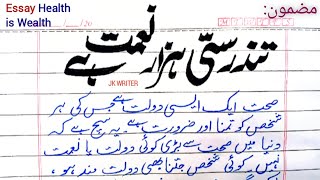 Essay Health is Wealth
مضمون:
تندرستی ہزار نعمت ہے
JK WRITER
صحت ایک ایسی دولت ہے جس کی ہر
شخص کو تمنا اور ضرورت ہے۔ یہ سچ ہے کہ
دنیا میں صحت سے بڑی کوئی دولت یا نعمت
نہیں۔ کوئی شخص جتنا بھی دولت مند ہو،